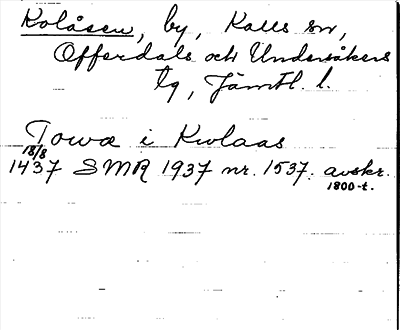 Kolåsen, by, Kalls sn,
Offerdals och Undersåkers
tg, Jämtl. l.
Towa i Kwlaas
18/8
1437 SMR 1937 nr. 1537. avskr.
1800-t.